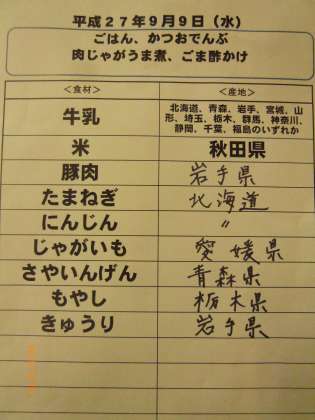 平成27年9月9日（水）
ごはん、かつおでんぶ
肉じゃがうま煮、ごま酢かけ
＜食材＞ ＜産地＞
牛乳 北海道、青森、岩手、宮城、山
形、埼玉、栃木、群馬、神奈川、
静岡、千葉、福島のいずれか
米 秋田県
豚肉 岩手県
たまねぎ 北海道
にんじん 〃
じゃがいも 愛媛県
さやいんげん 青森県
もやし 栃木県
きゅうり 岩手県